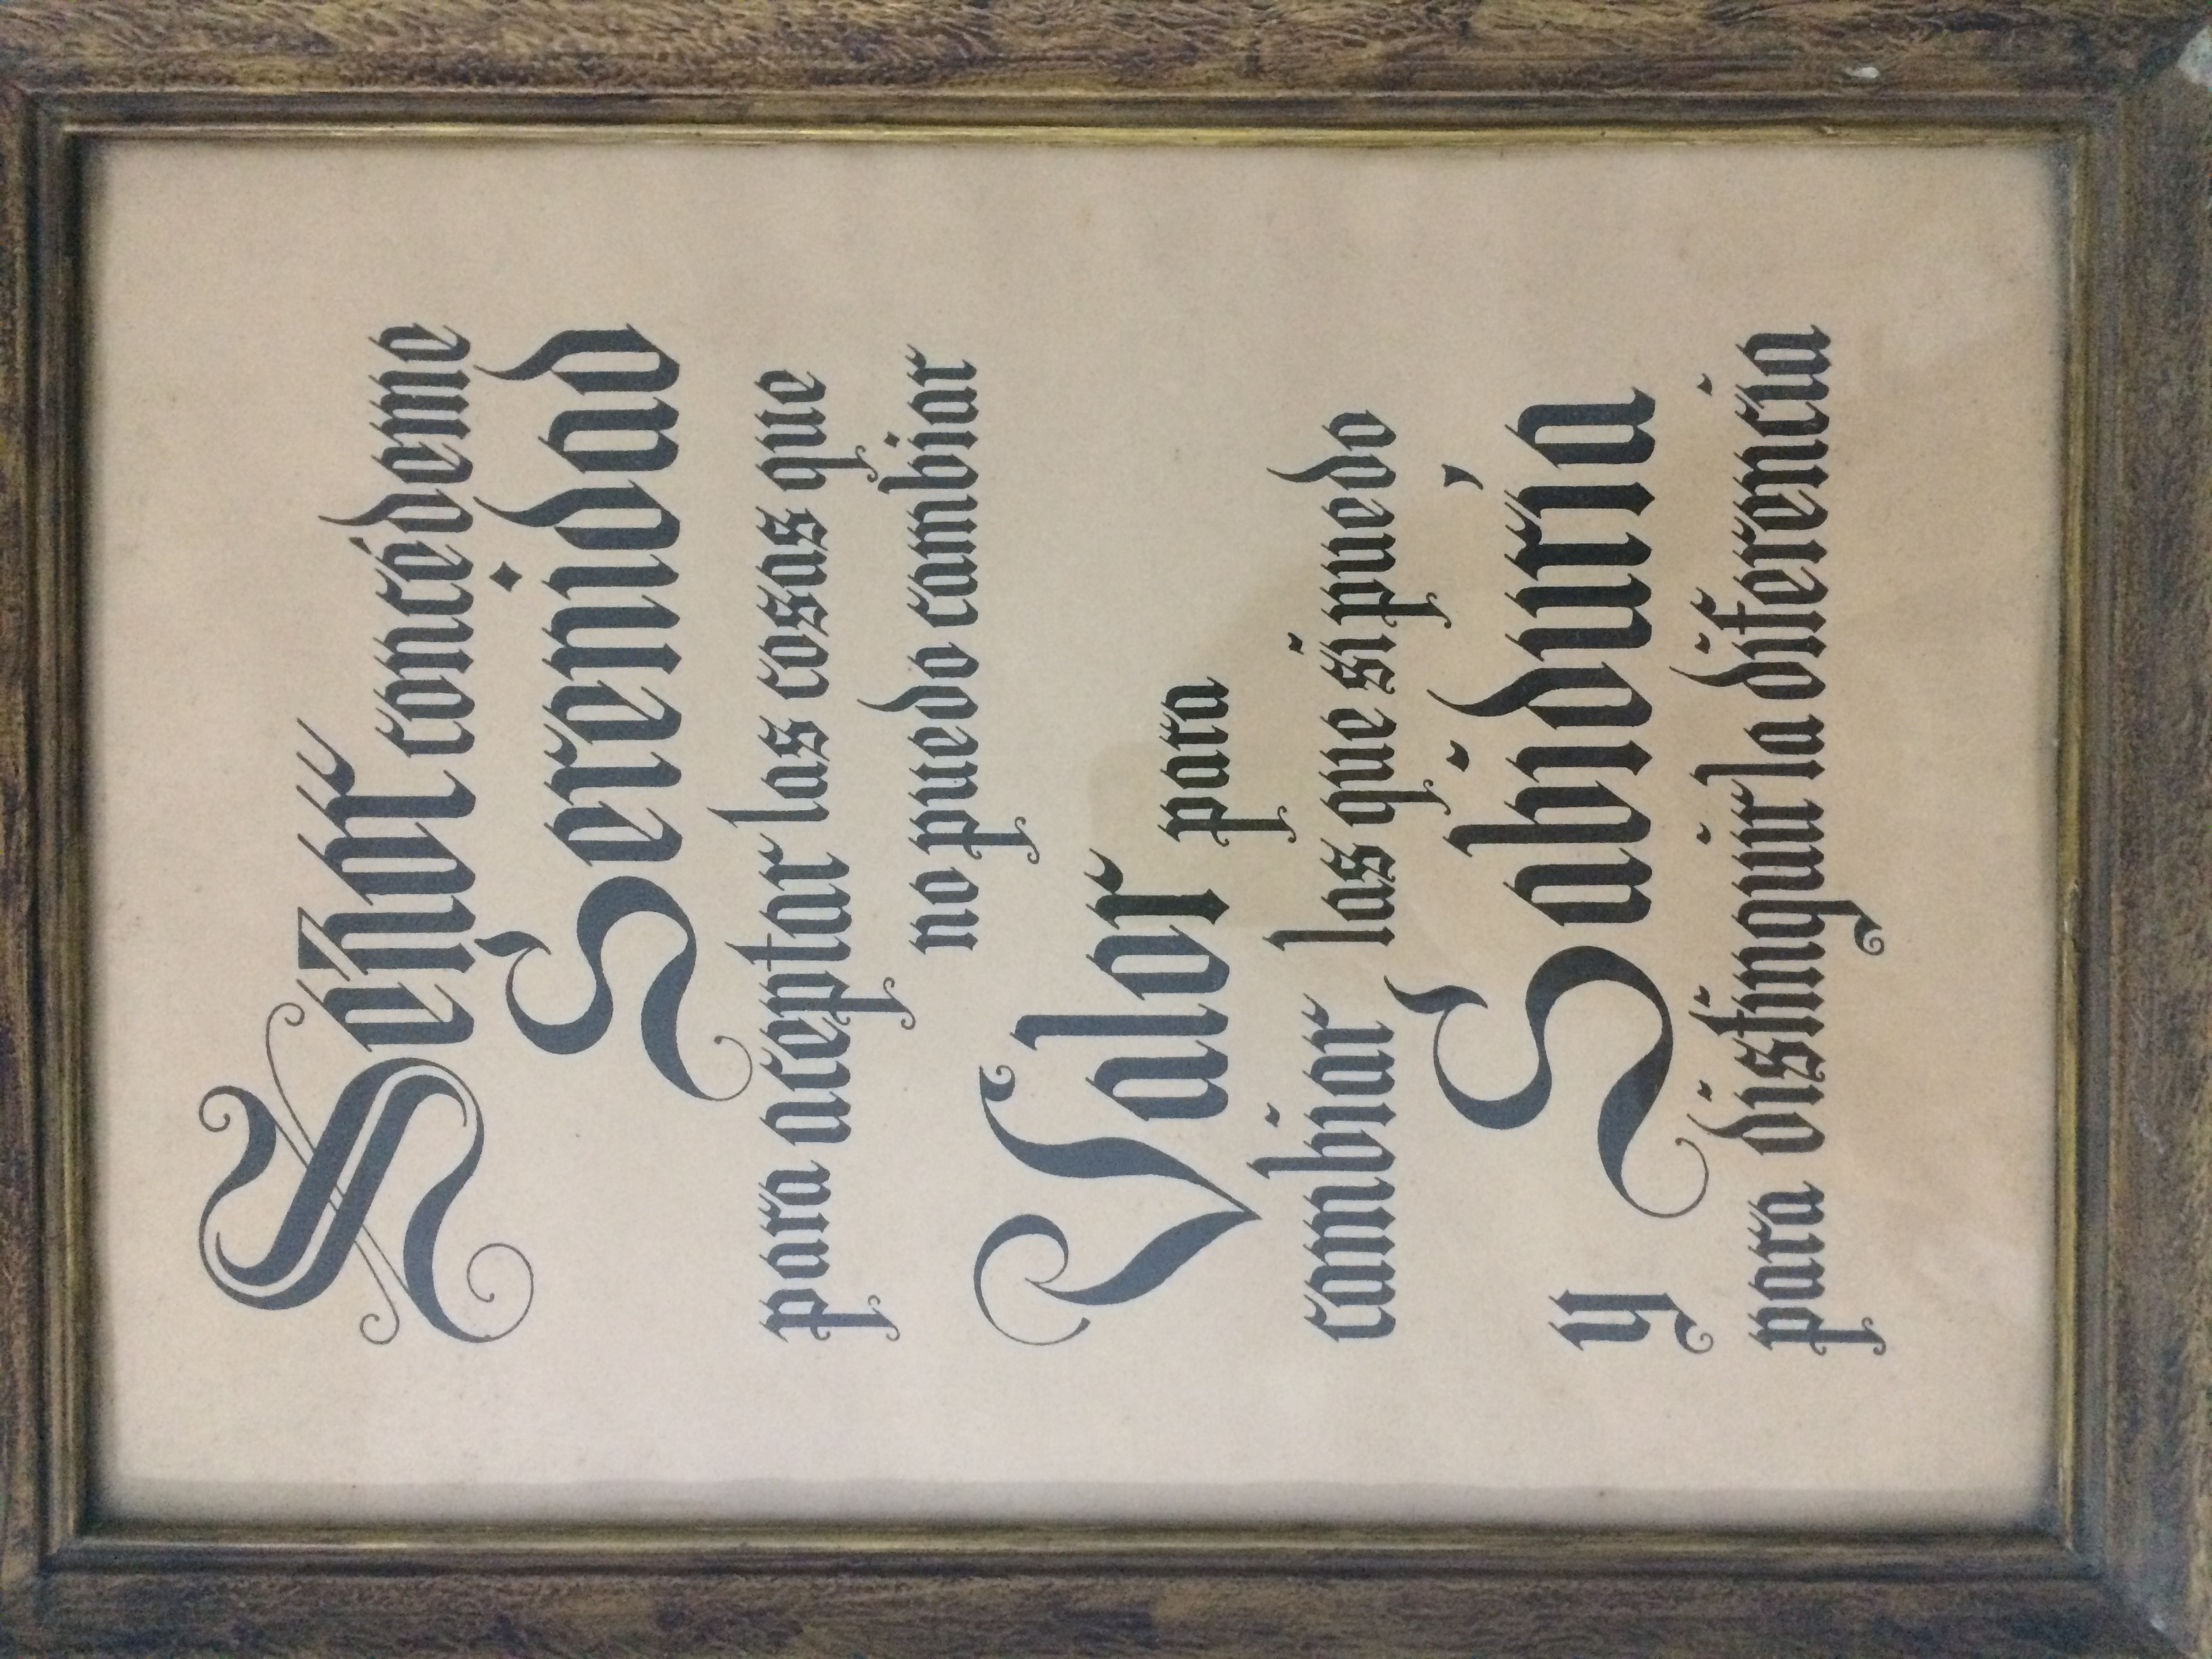 Señor concédeme
Serenidad
para aceptar las cosas que
no puedo cambiar
Valor para
cambiar las que si puedo
y Sabiduría
para distinguir la diferencia